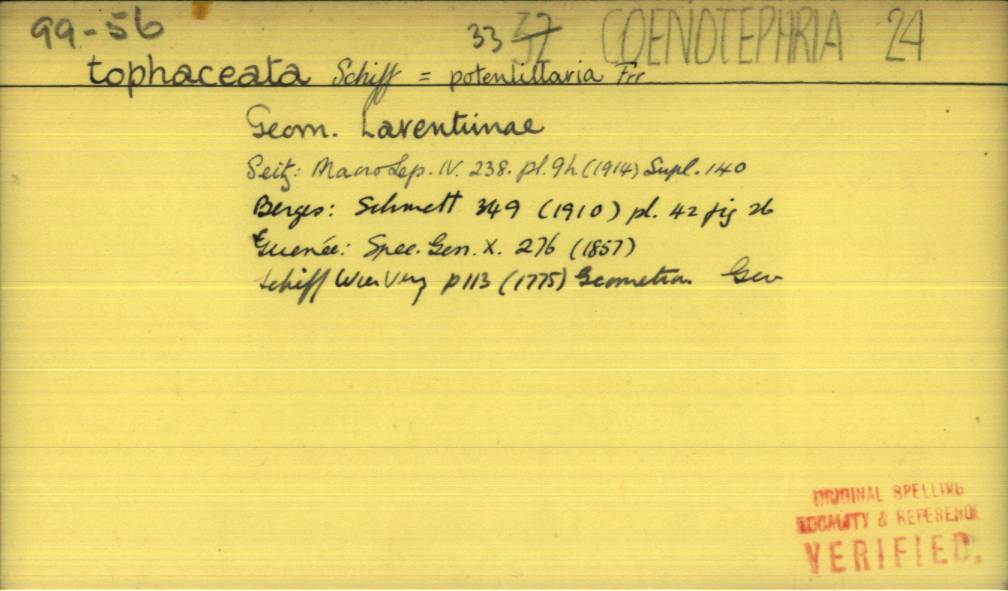 99-56 33 37 COENOTEPHRIA 24
tophaceata Schiff = potentillaria Frr
Geom. Larentiinae
Seitz: Macrolep. IV. 238. pl. 9h (1914) Supl. 140
Berges: Schmett 349 (1910) pl. 42 fig 26
Guenée: Spec. Gen. X. 276 (1857)
Schiff Wien Verz p 113 (1775) Geometra
ORIGINAL SPELLING
LOCALITY & REFERENCE
VERIFIED.